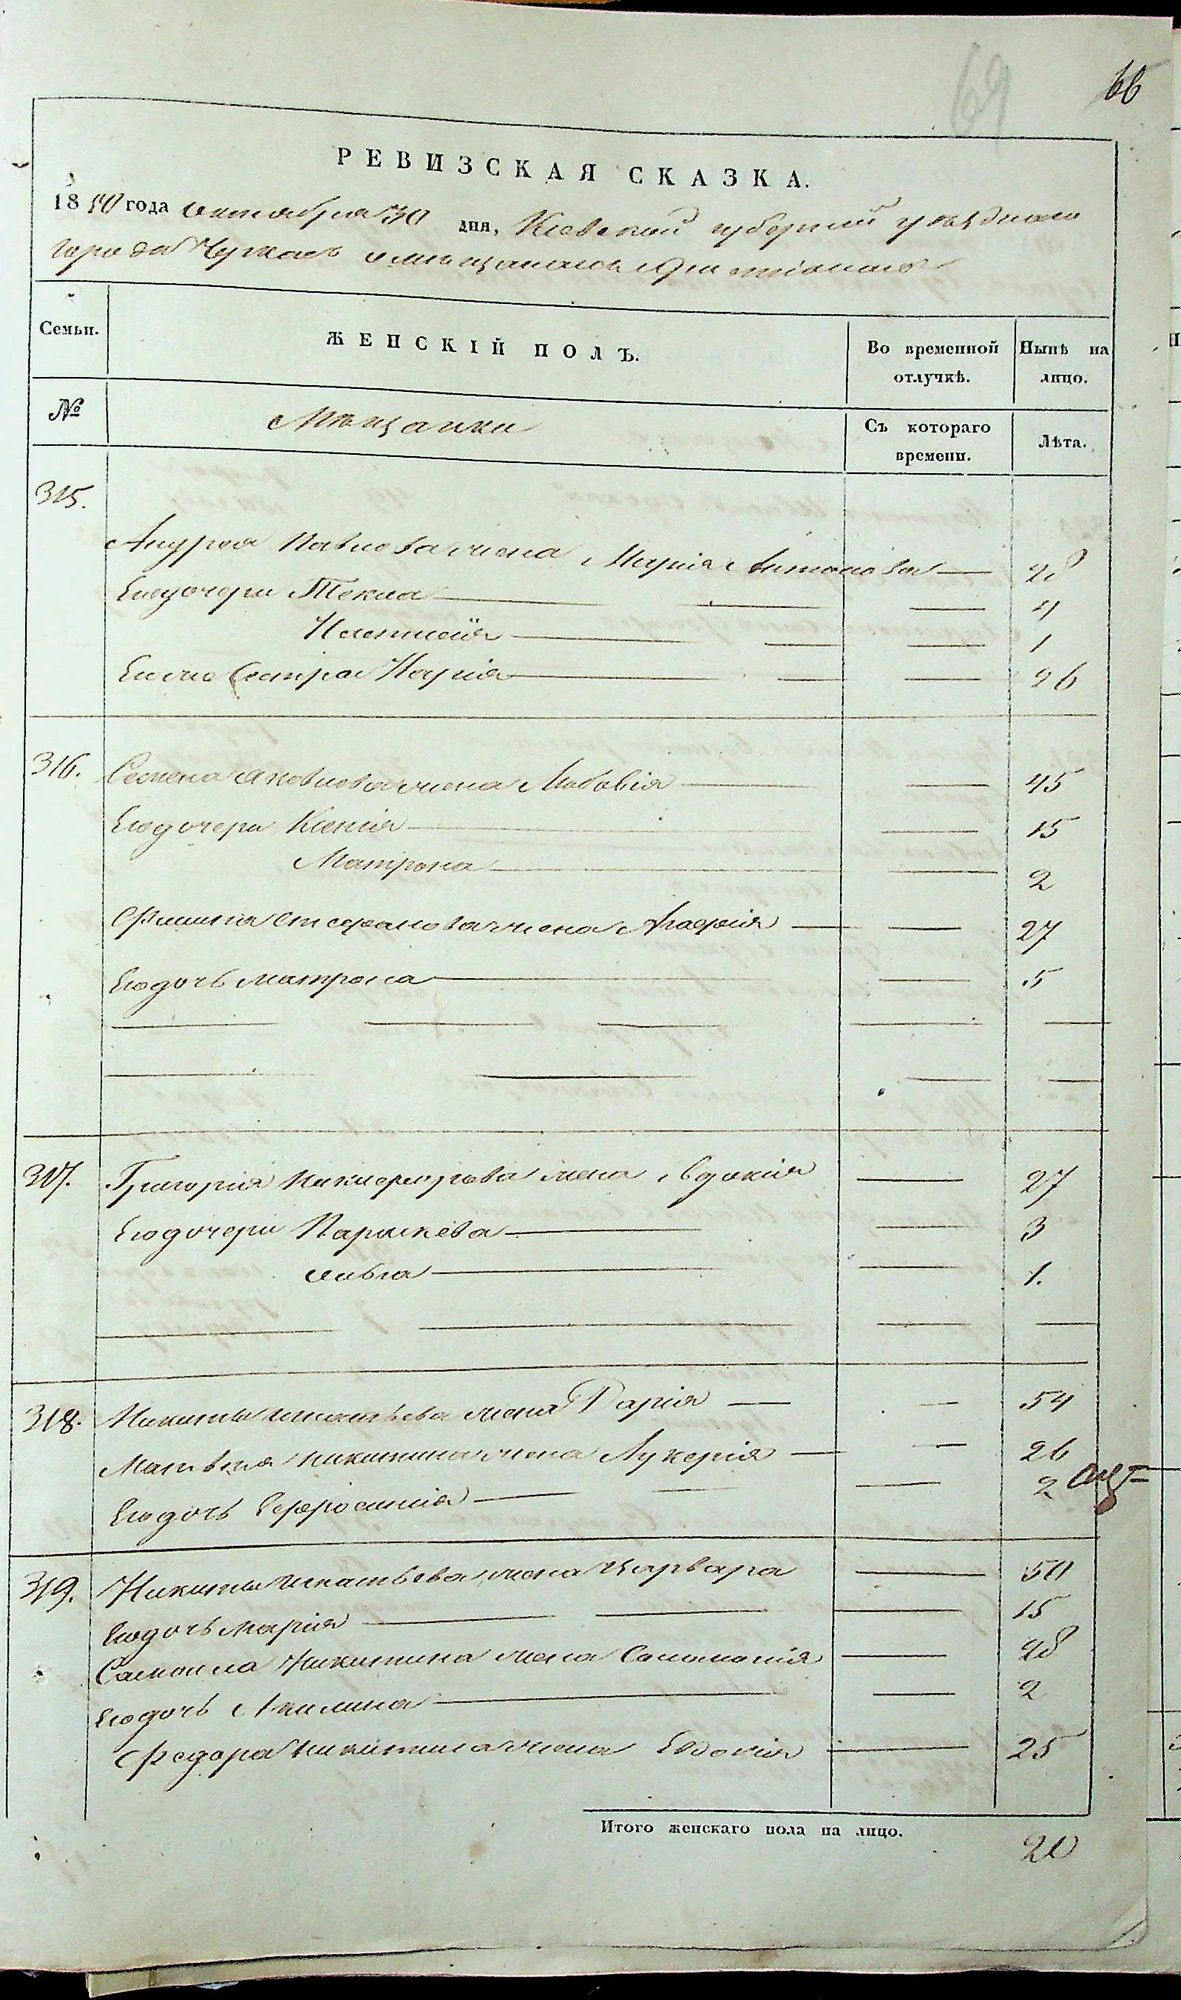 69
66
РЕВИЗСКАЯ СКАЗКА.
1850 года октября 30 дня, Киевской губернии уезднаго
города Черкасъ о мещанахъ христианахъ
Семьи.
ЖЕНСКІЙ ПОЛЪ.
Во временной отлучкѣ.
Нынѣ на лицо.
№
Мѣщанки
Съ котораго времени.
Лѣта.
315.
Андрея Павлова жена Марія Антонова 28
Его дочери Текла 4
1
Его же Сестра Марія 26
316. Семена Яковлева жена Любовія 45
Его дочери Ксенія 15
Матрона 2
Филипа Стефанова жена Агафія 27
Его дочь Матрона 5
317. Григорія Никифорова жена Евдокія 27
Его дочери Параскева 3
1.
318. Никиты Игнатьева жена Дарія 54
Матвѣя Никитина жена Лукерія 26
Его дочь Ефросинія 2
319. Никиты Игнатьева жена Варвара 50
Его дочь Марія 15
Самоила Никитина жена Соломонія 28
Его дочь Акилина 2
Федора Никитина жена Евдокія 25
Итого женскаго пола на лицо.
20